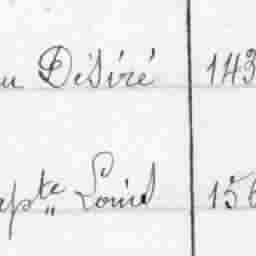 u Désiré 143
apte Louis 156